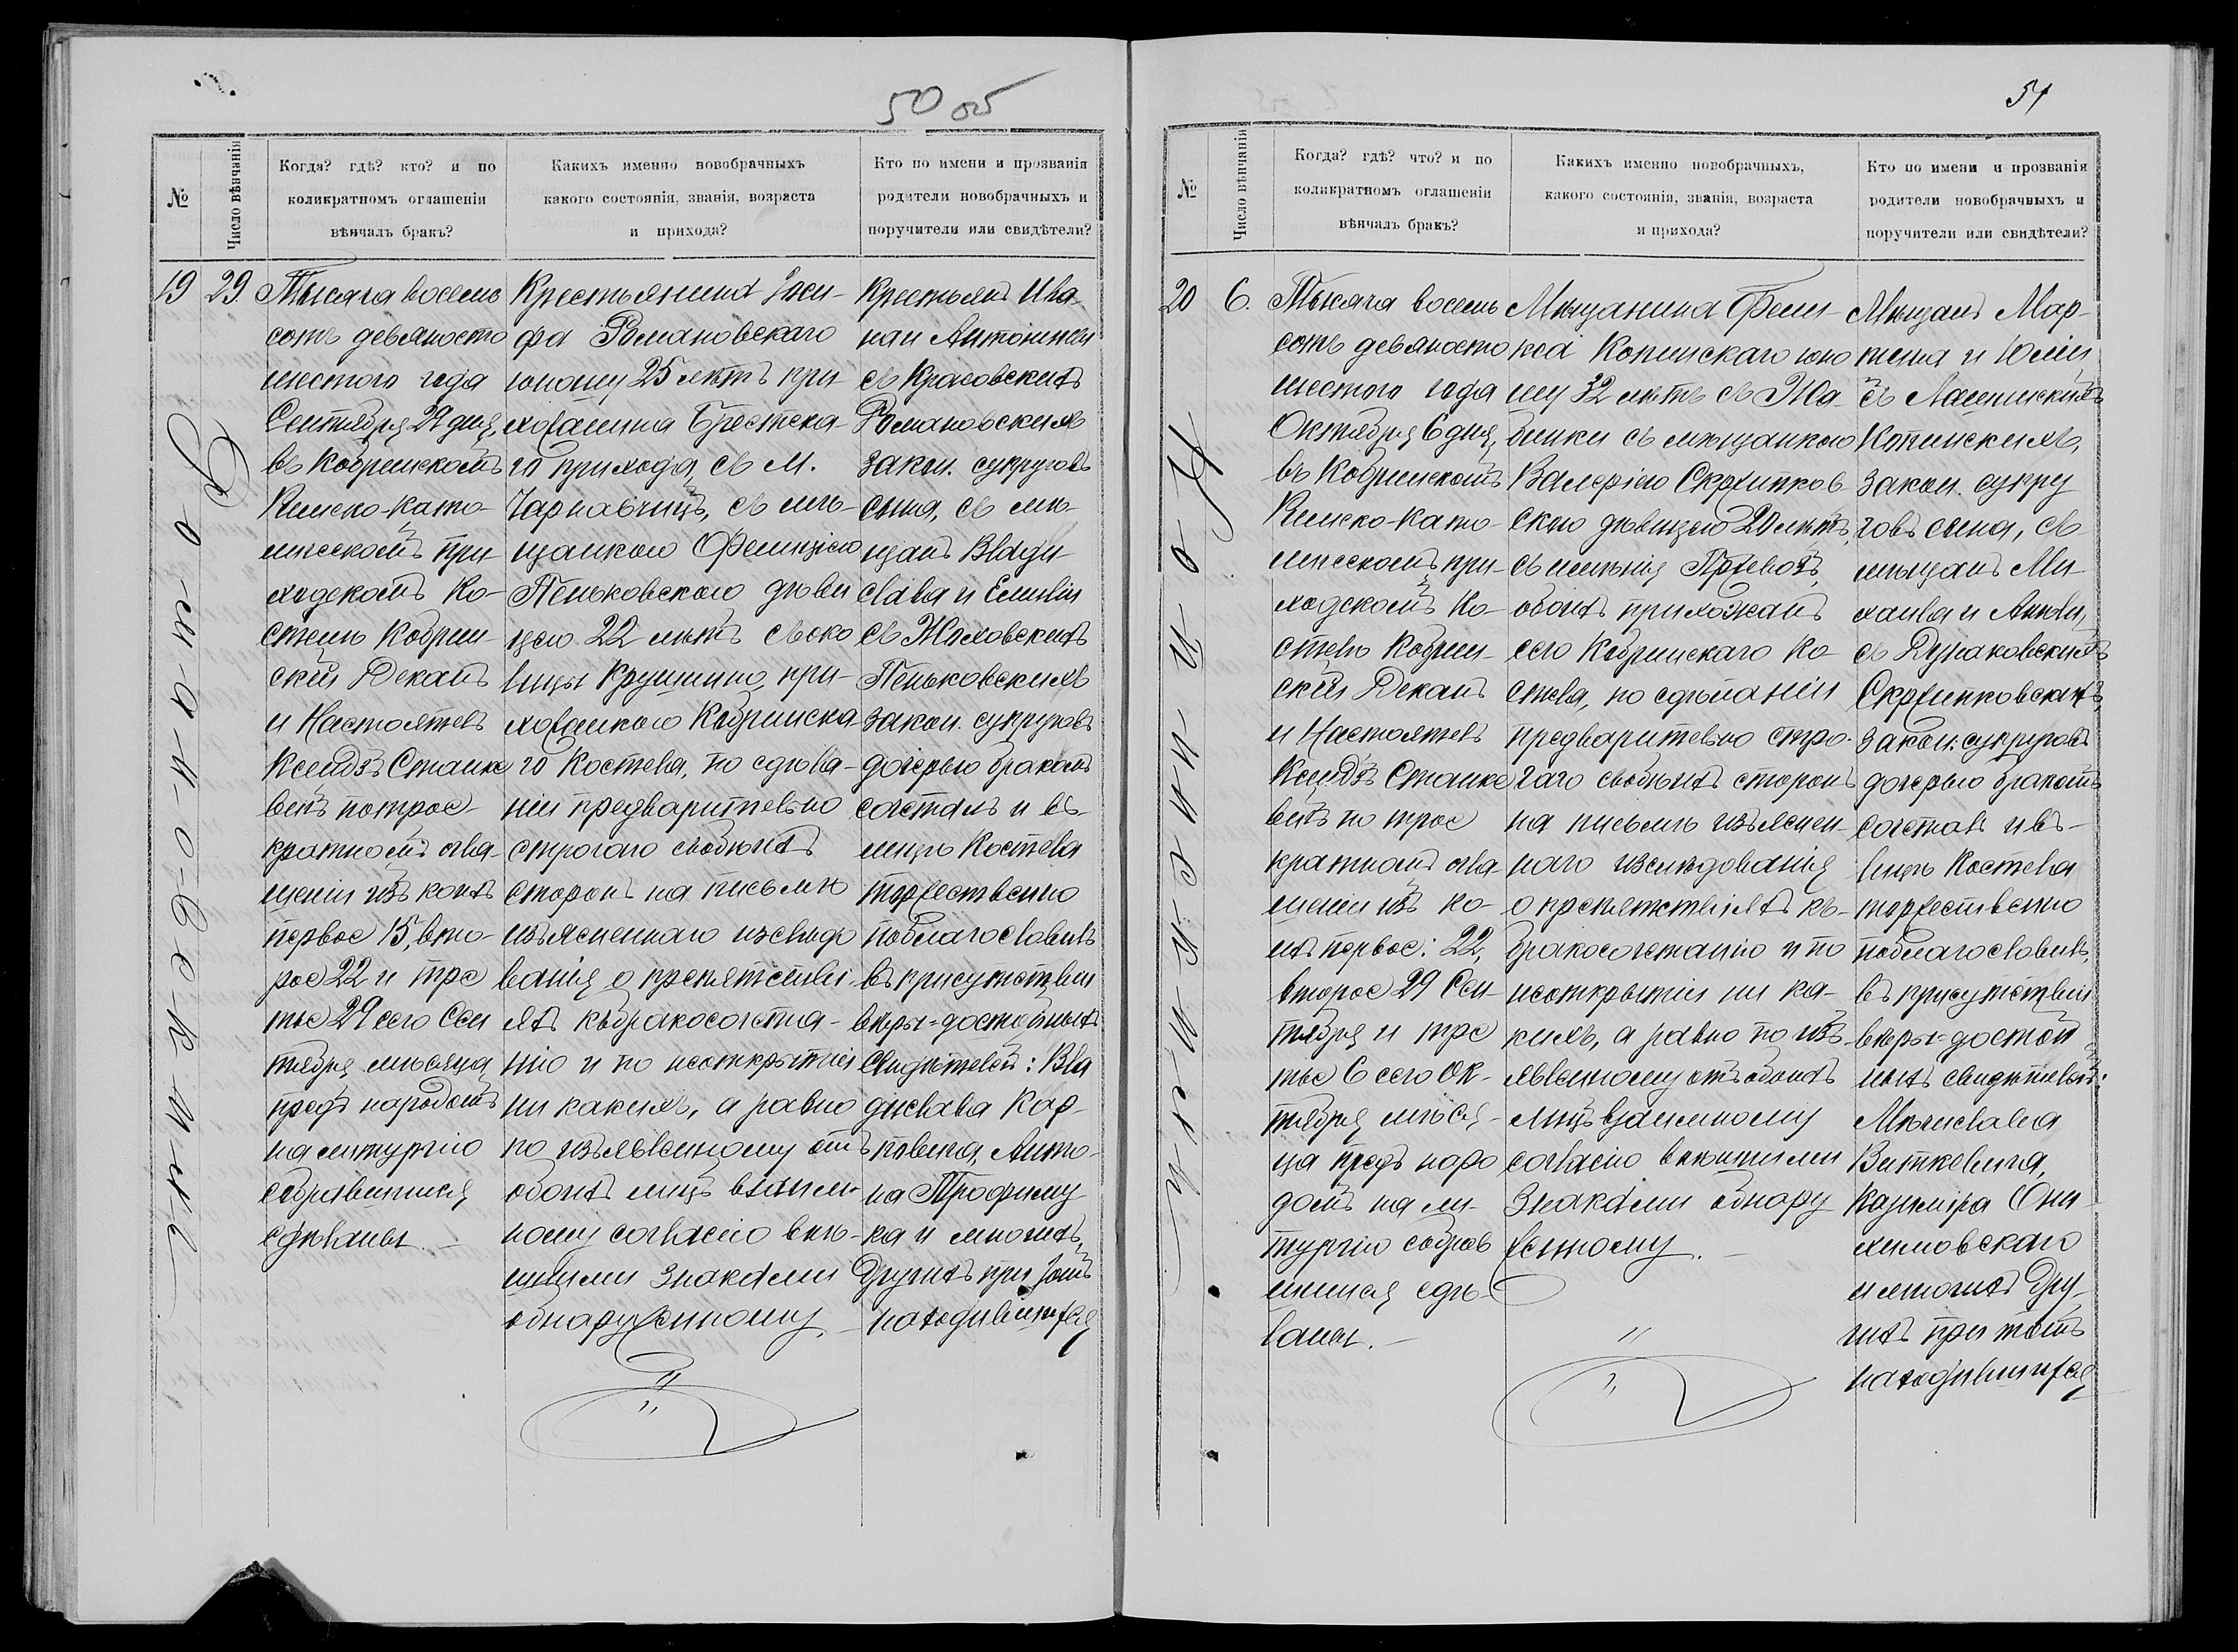 50 об
№
Число вѣнчанія
Когда? гдѣ? кто? и по
коликратномъ оглашеніи
вѣнчалъ бракъ?
Какихъ именно новобрачныхъ
какого состоянія, званія, возраста
и прихода?
Кто по имени и прозванія
родители новобрачныхъ и
поручители или свидѣтели?
19
29.
Тысяча восемь
сотъ девяносто
шестого года
Сентября 29 дня,
въ Кобринскомъ
Римско-Като-
лическомъ при-
ходскомъ Ко-
стелѣ Кобрин-
скій Деканъ
и Настоятель
Ксендзъ Станке
вичъ по трое-
кратномъ огла-
шеніи изъ коихъ
первое 15, вто-
рое 22 и тре
тье 29 сего Сен
тября мѣсяца
предъ народомъ
на литургію
собравшимся
сдѣланы. —
Крестьянина Іоси-
фа Романовскаго
юношу 25 лѣтъ при-
хожанина Брестска-
го прихода, съ м.
Чарнавчицъ, съ мѣ-
щанкою Фелиціею
Пеньковскою дѣви
цею 22 лѣтъ съ око
лицы Крушино, при-
хожанкою Кобринска
го Костела, по сдѣла-
ніи предварительно
строгаго обоюдныхъ
сторонъ на письмѣ
изъясненнаго изслѣдо
ванія о препятстві-
яхъ къ бракосочета-
нію и по неоткрытіи
ни какихъ, а равно
по изъявленному отъ
обоихъ лицъ взаим-
ному согласію внѣ-
шними знаками
обнаруженному. —
Крестьянъ Ива
на и Антонины
съ Красовскихъ
Романовскихъ
закон. супруговъ
сына, съ мѣ-
щанъ Влади
слава и Емиліи
съ Жуховскихъ
Пеньковскихъ
закон. супруговъ
дочерью бракомъ
сочеталъ и въ
лицѣ Костела
торжественно
поблагословилъ
въ присутствіи
вѣры-достойныхъ
свидѣтелей: Вла
дислава Кар-
повича, Анто-
на Трофиму
ка и многихъ
другихъ при томъ
находившихся
Романовскій
51
№
Число вѣнчанія
Когда? гдѣ? что? и по
коликратномъ оглашеніи
вѣнчалъ бракъ?
Какихъ именно новобрачныхъ,
какого состоянія, званія, возраста
и прихода?
Кто по имени и прозванія
родители новобрачныхъ и
поручители или свидѣтели?
20
6.
Тысяча восемь
сотъ девяносто
шестого года
Октября 6 дня,
въ Кобринскомъ
Римско-Като-
лическомъ при-
ходскомъ Ко-
стелѣ Кобрин-
скій Деканъ
и Настоятель
Ксендзъ Станке
вичъ по трое
кратномъ огла-
шеніи изъ ко-
ихъ первое: 22,
второе 29 Сен-
тября и тре
тье 6 сего Ок-
тября мѣся-
ца предъ наро
домъ на ли-
тургію собрав
шимся сдѣ-
ланы. —
Мѣщанина Фели-
кса Копинскаго юно
шу 32 лѣтъ съ Жа-
бинки съ мѣщанкою
Валеріею Скржипков
скою дѣвицею 20 лѣтъ,
съ имѣнія
обоихъ прихожанъ
сего Кобринскаго Ко
стела, по сдѣланіи
предварительно стро-
гаго обоюдныхъ сторонъ
на письмѣ изъяснен-
наго изслѣдованія
о препятствіяхъ къ
бракосочетанію и по
неоткрытіи ни ка-
кихъ, а равно по изъ
явленному отъ обоихъ
лицъ взаимному
согласію внѣшними
знаками обнару
женному. —
Мѣщанъ Мар-
и Юліи
съ
Копинскихъ,
закон. супру
говъ сына, съ
мѣщанъ Ми-
хаила и
съ
Скржипковскихъ,
закон. супруговъ
дочерью бракомъ
сочеталъ и въ-
лицѣ Костела
торжественно
поблагословилъ,
въ присутствіи
вѣры-достой
ныхъ свидѣтелей:
Мѣчислава
Виткевича,
Казимира Они-
химовскаго
и многихъ дру-
гихъ при томъ
находившихся